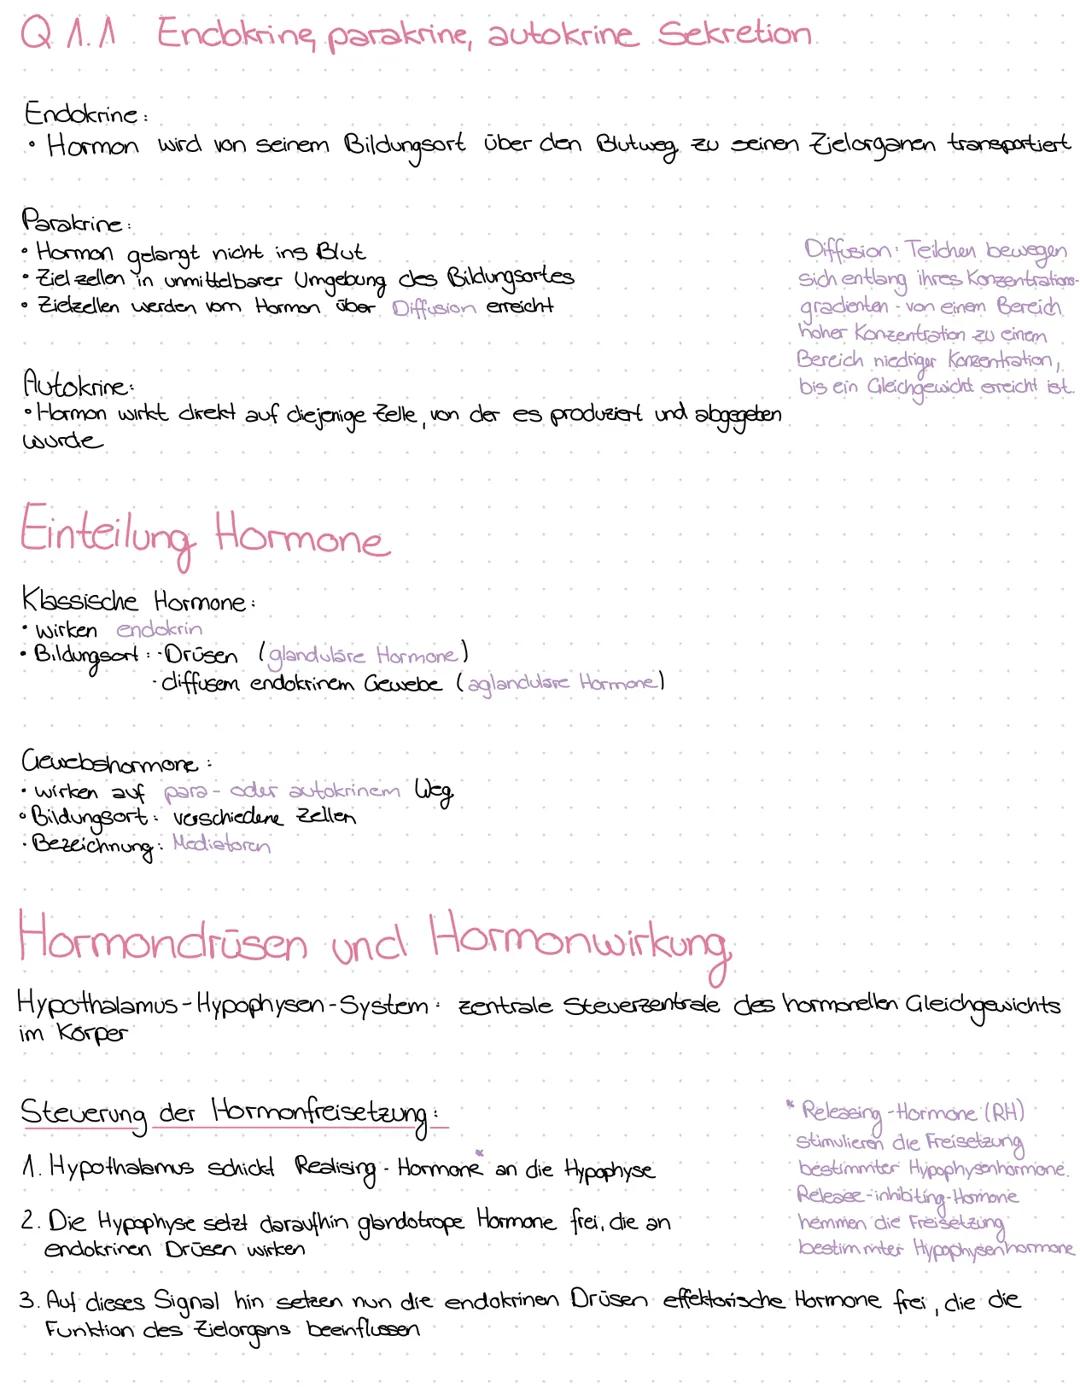 Q 1.1 Endokrine, parakrine, autokrine Sekretion
Endokrine:
• Hormon wird von seinem Bildungsort über den Blutweg zu seinen Zielorganen transportiert
Parakrine:
• Hormon gelangt nicht ins Blut
• Zielzellen in unmittelbarer Umgebung des Bildungsortes
• Zielzellen werden vom Hormon über Diffusion erreicht
Diffusion: Teilchen bewegen
sich entlang ihres Konzentrations-
gradienten - von einem Bereich
hoher Konzentration zu einem
Bereich niedriger Konzentration,
bis ein Gleichgewicht erreicht ist.
Autokrine:
• Hormon wirkt direkt auf diejenige Zelle, von der es produziert und abgegeben
wurde
Einteilung Hormone
Klassische Hormone:
• wirken endokrin
• Bildungsort: - Drüsen (glanduläre Hormone)
- diffusem endokrinem Gewebe (aglanduläre Hormone)
Gewebshormone:
• wirken auf para- oder autokrinem Weg
• Bildungsort: verschiedene Zellen
• Bezeichnung: Mediatoren
Hormondrüsen und Hormonwirkung
Hypothalamus-Hypophysen-System: zentrale Steuerzentrale des hormonellen Gleichgewichts
im Körper
Steuerung der Hormonfreisetzung:
1. Hypothalamus schickt Realising-Hormone* an die Hypophyse
2. Die Hypophyse setzt daraufhin glandotrope Hormone frei, die an
endokrinen Drüsen wirken
* Releasing-Hormone (RH)
stimulieren die Freisetzung
bestimmter Hypophysenhormone.
Release-inhibiting-Hormone
hemmen die Freisetzung
bestimmter Hypophysenhormone
3. Auf dieses Signal hin setzen nun die endokrinen Drüsen effektorische Hormone frei, die die
Funktion des Zielorgans beeinflussen